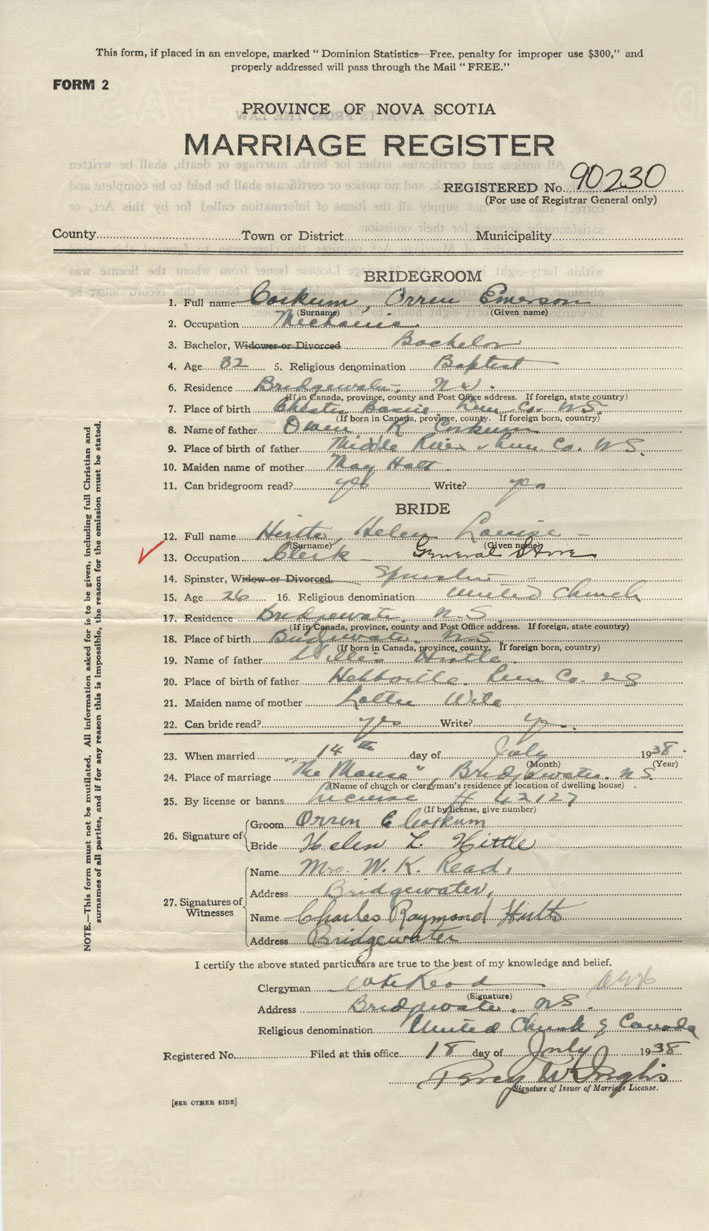 This form, if placed in an envelope, marked " Dominion Statistics—Free, penalty for improper use $300," and
properly addressed will pass through the Mail " FREE."
FORM 2
PROVINCE OF NOVA SCOTIA
MARRIAGE REGISTER
REGISTERED No. 90230
(For use of Registrar General only)
County Town or District Municipality
BRIDEGROOM
1. Full name Corkum, Orren Emerson
(Surname) (Given name)
2. Occupation Mechanic
3. Bachelor, Widower or Divorced Bachelor
4. Age 32 5. Religious denomination Baptist
6. Residence Bridgewater, N.S.
(If in Canada, province, county and Post Office address. If foreign, state country)
7. Place of birth Chester Basin Lun. Co. N.S.
(If born in Canada, province, county. If foreign born, country)
8. Name of father Owen R Corkum
9. Place of birth of father Middle River Lun. Co. N.S.
10. Maiden name of mother May Hatt
11. Can bridegroom read? yes Write? yes
BRIDE
12. Full name Hirtle, Helen Louise
(Surname) (Given name)
13. Occupation Clerk General Store
14. Spinster, Widow or Divorced Spinster
15. Age 26 16. Religious denomination United Church
17. Residence Bridgewater, N.S.
(If in Canada, province, county and Post Office address. If foreign, state country)
18. Place of birth Bridgewater N.S.
(If born in Canada, province, county, If foreign born, country)
19. Name of father Hirtle
20. Place of birth of father Hebbville. Lun. Co. N.S.
21. Maiden name of mother Lottie Wile
22. Can bride read? yes Write? yes
23. When married 14th day of July 1938
(Month) (Year)
24. Place of marriage "The Manse", Bridgewater. N.S.
(Name of church or clergyman's residence or location of dwelling house)
25. By license or banns License # 62127
(If by license, give number)
26. Signature of
Groom Orren E Corkum
Bride Helen L. Hirtle
27. Signatures of Witnesses
Name Mrs. W. K. Read,
Address Bridgewater,
Name Charles Raymond Hirtle
Address Bridgewater
I certify the above stated particulars are true to the best of my knowledge and belief.
Clergyman W K Read
(Signature)
Address Bridgewater, N.S.
Religious denomination United Church of Canada
Registered No. Filed at this office 18 day of July 1938
Signature of Issuer of Marriage License.
[SEE OTHER SIDE]
NOTE.—This form must not be mutilated. All information asked for is to be given, including full Christian and
surnames of all parties, and if for any reason this is impossible, the reason for the omission must be stated.